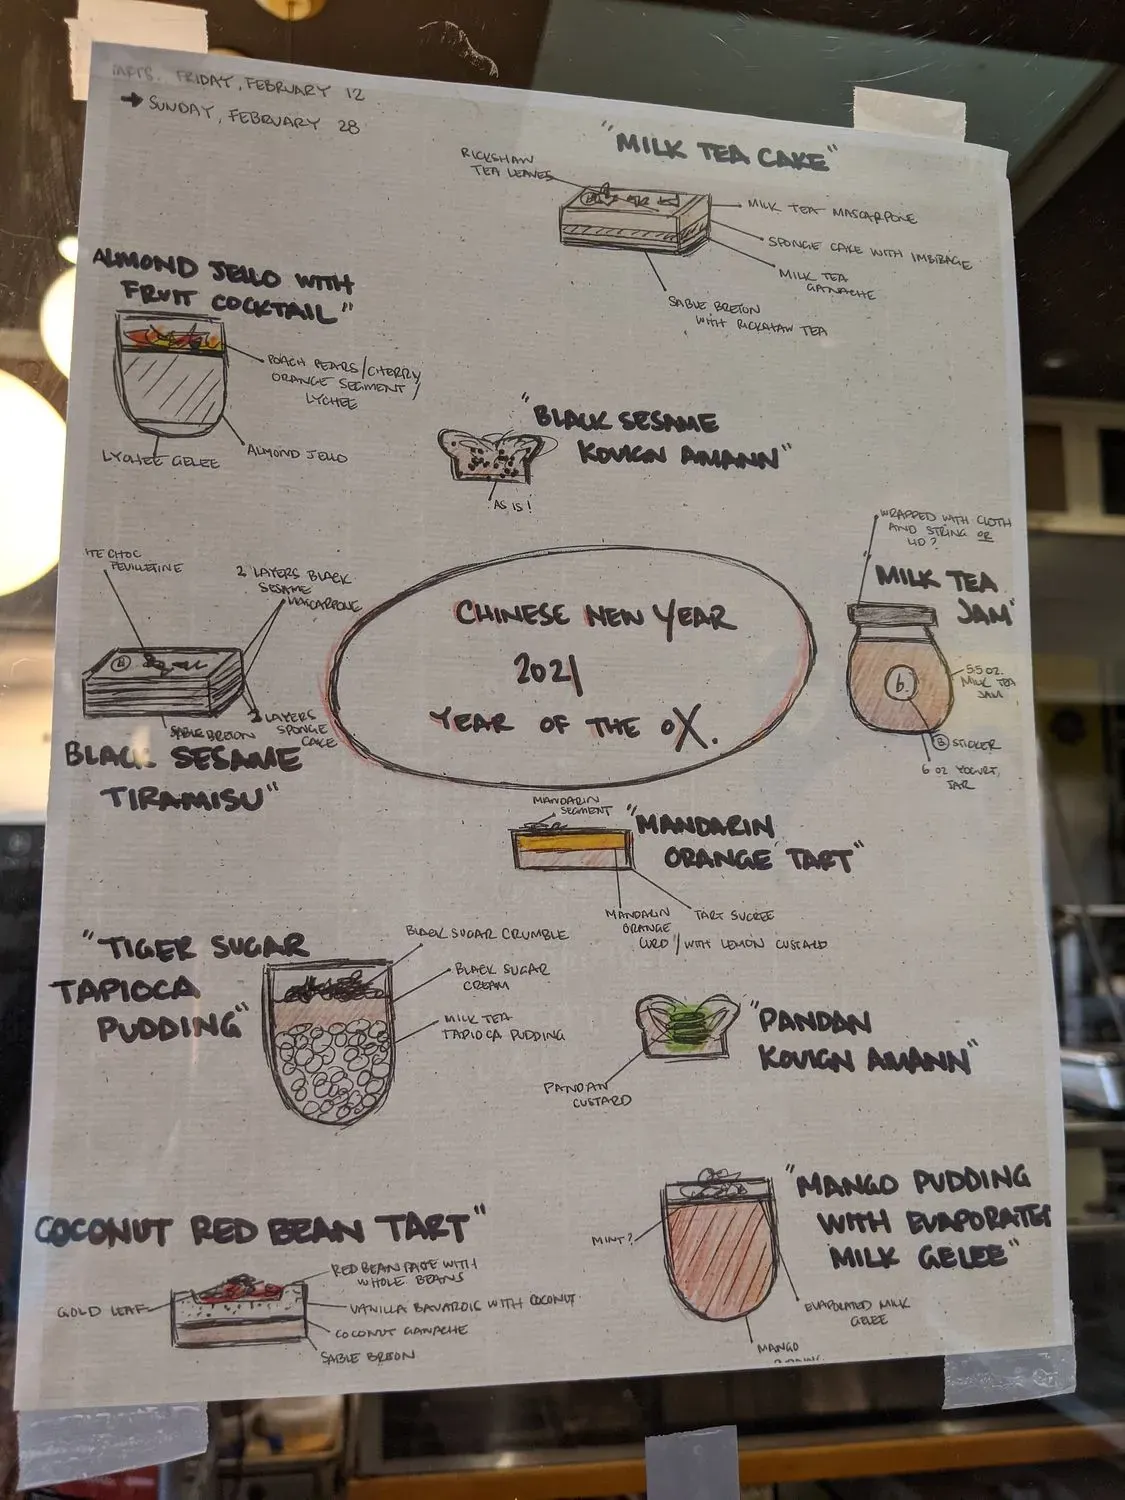 FRIDAY, FEBRUARY 12
→ SUNDAY, FEBRUARY 28
"MILK TEA CAKE"
RICKSHAW
TEA LEAVES
MILK TEA MASCARPONE
SPONGE CAKE WITH IMBIBAGE
MILK TEA
GANACHE
SABLE BRETON
WITH RICKSHAW TEA
ALMOND JELLO WITH
FRUIT COCKTAIL"
POACH PEARS/CHERRY
ORANGE SEGMENT/
LYCHEE
ALMOND JELLO
LYCHEE GELEE
"BLACK SESAME
KOUIGN AMANN"
AS IS!
WRAPPED WITH CLOTH
AND STRING OR
LID?
MILK TEA
JAM"
5.5 OZ.
MILK TEA
JAM
b.
B STICKER
6 OZ YOGURT
JAR
ITE CHOC
FEUILLETINE
2 LAYERS BLACK
SESAME
MASCARPONE
B
SABLE BRETON
2 LAYERS
SPONGE
CAKE
BLACK SESAME
TIRAMISU"
CHINESE NEW YEAR
2021
YEAR OF THE OX.
MANDARIN
SEGMENT
"MANDARIN
ORANGE TART"
MANDARIN
ORANGE
CURD/WITH LEMON CUSTARD
TART SUCREE
"TIGER SUGAR
TAPIOCA
PUDDING"
BLACK SUGAR CRUMBLE
BLACK SUGAR
CREAM
MILK TEA
TAPIOCA PUDDING
"PANDAN
KOUIGN AMANN"
PANDAN
CUSTARD
COCONUT RED BEAN TART"
RED BEAN PASTE WITH
WHOLE BEANS
GOLD LEAF
VANILLA BAVAROIS WITH COCONUT
COCONUT GANACHE
SABLE BRETON
"MANGO PUDDING
WITH EVAPORATED
MILK GELEE"
MINT?
EVAPORATED MILK
GELEE
MANGO